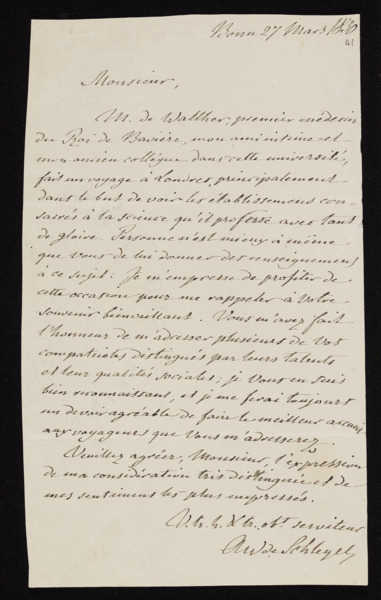 Bonn 27 Mars
41
Monsieur,
M. de Walther, premier médecin
du Roi de Bavière, mon ami intime et
mon ancien collègue dans cette université,
fait un voyage à Londres, principalement
dans le but de voir les établissemens con-
sacrés à la science qu'il professe avec tant
de gloire. Personne n'est mieux à même
que vous de lui donner des renseignemens
à ce sujet: Je m'empresse de profiter de
cette occasion pour me rappeler à Votre
souvenir bienveillant. Vous m'avez fait
l'honneur de m'adresser plusieurs de vos
compatriotes distingués par leurs talents
et leur qualités sociales; je Vous en suis
bien reconnaissant, et je me ferai toujours
un devoir agréable de faire le meilleur accueil
aux voyageurs que Vous m'adresserez.
Veuillez agréer, Monsieur, l'expression
de ma considération très distinguée et de
mes sentimens les plus empressés.
V. tr. h. & tr. obt. serviteur
AW de Schlegel